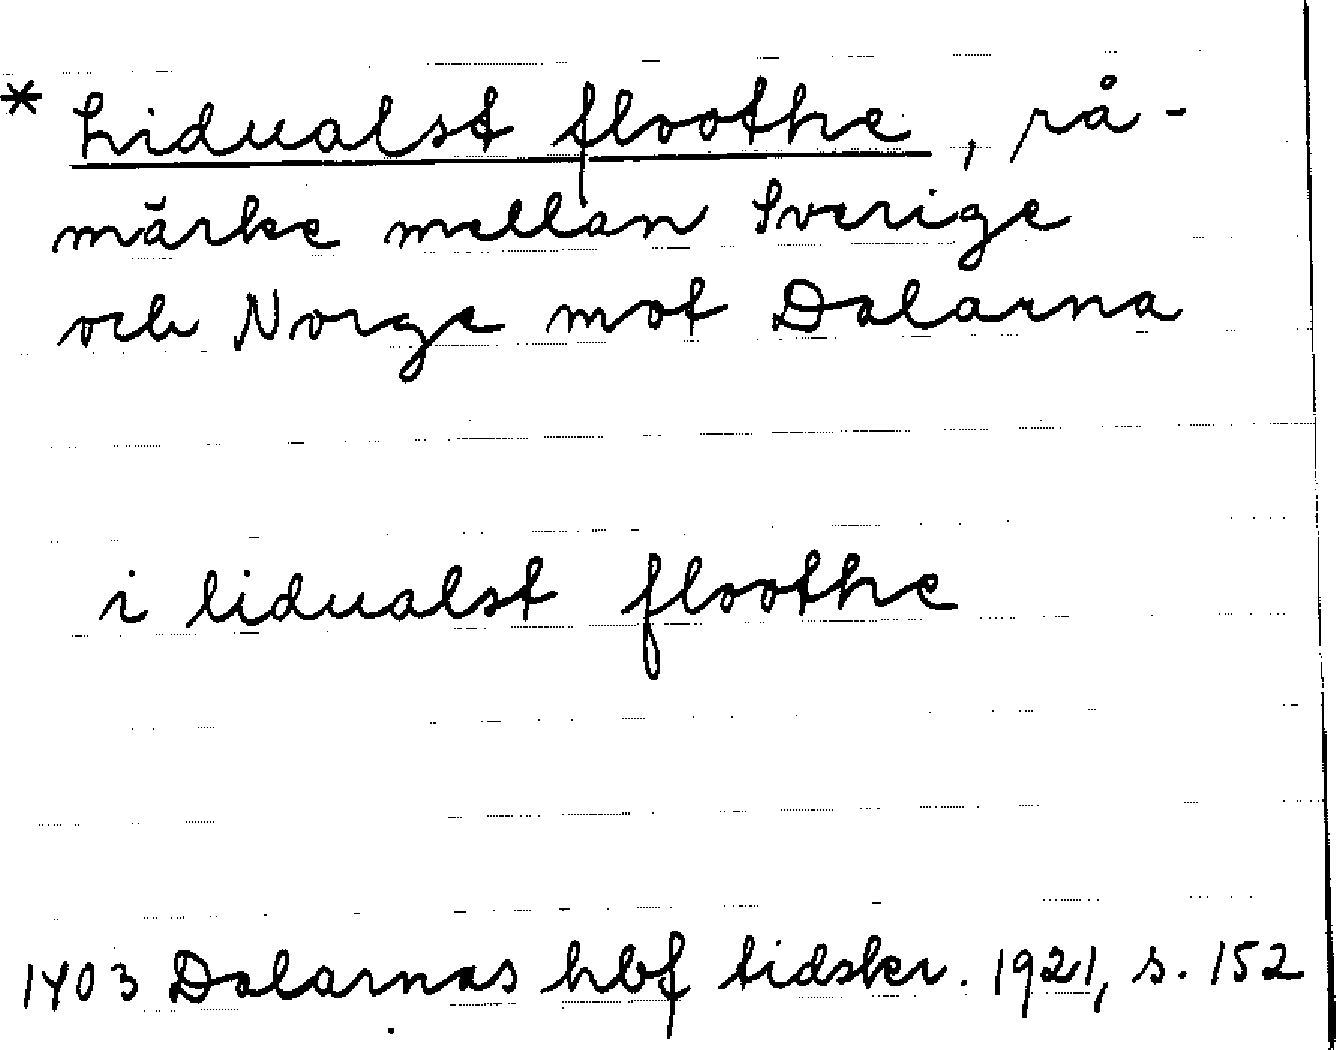 * Lidualst floothe, rå-
märke mellan Sverige
och Norge mot Dalarna
i lidualst floothe
1403 Dalarnas hbf tidskr. 1921, s. 152